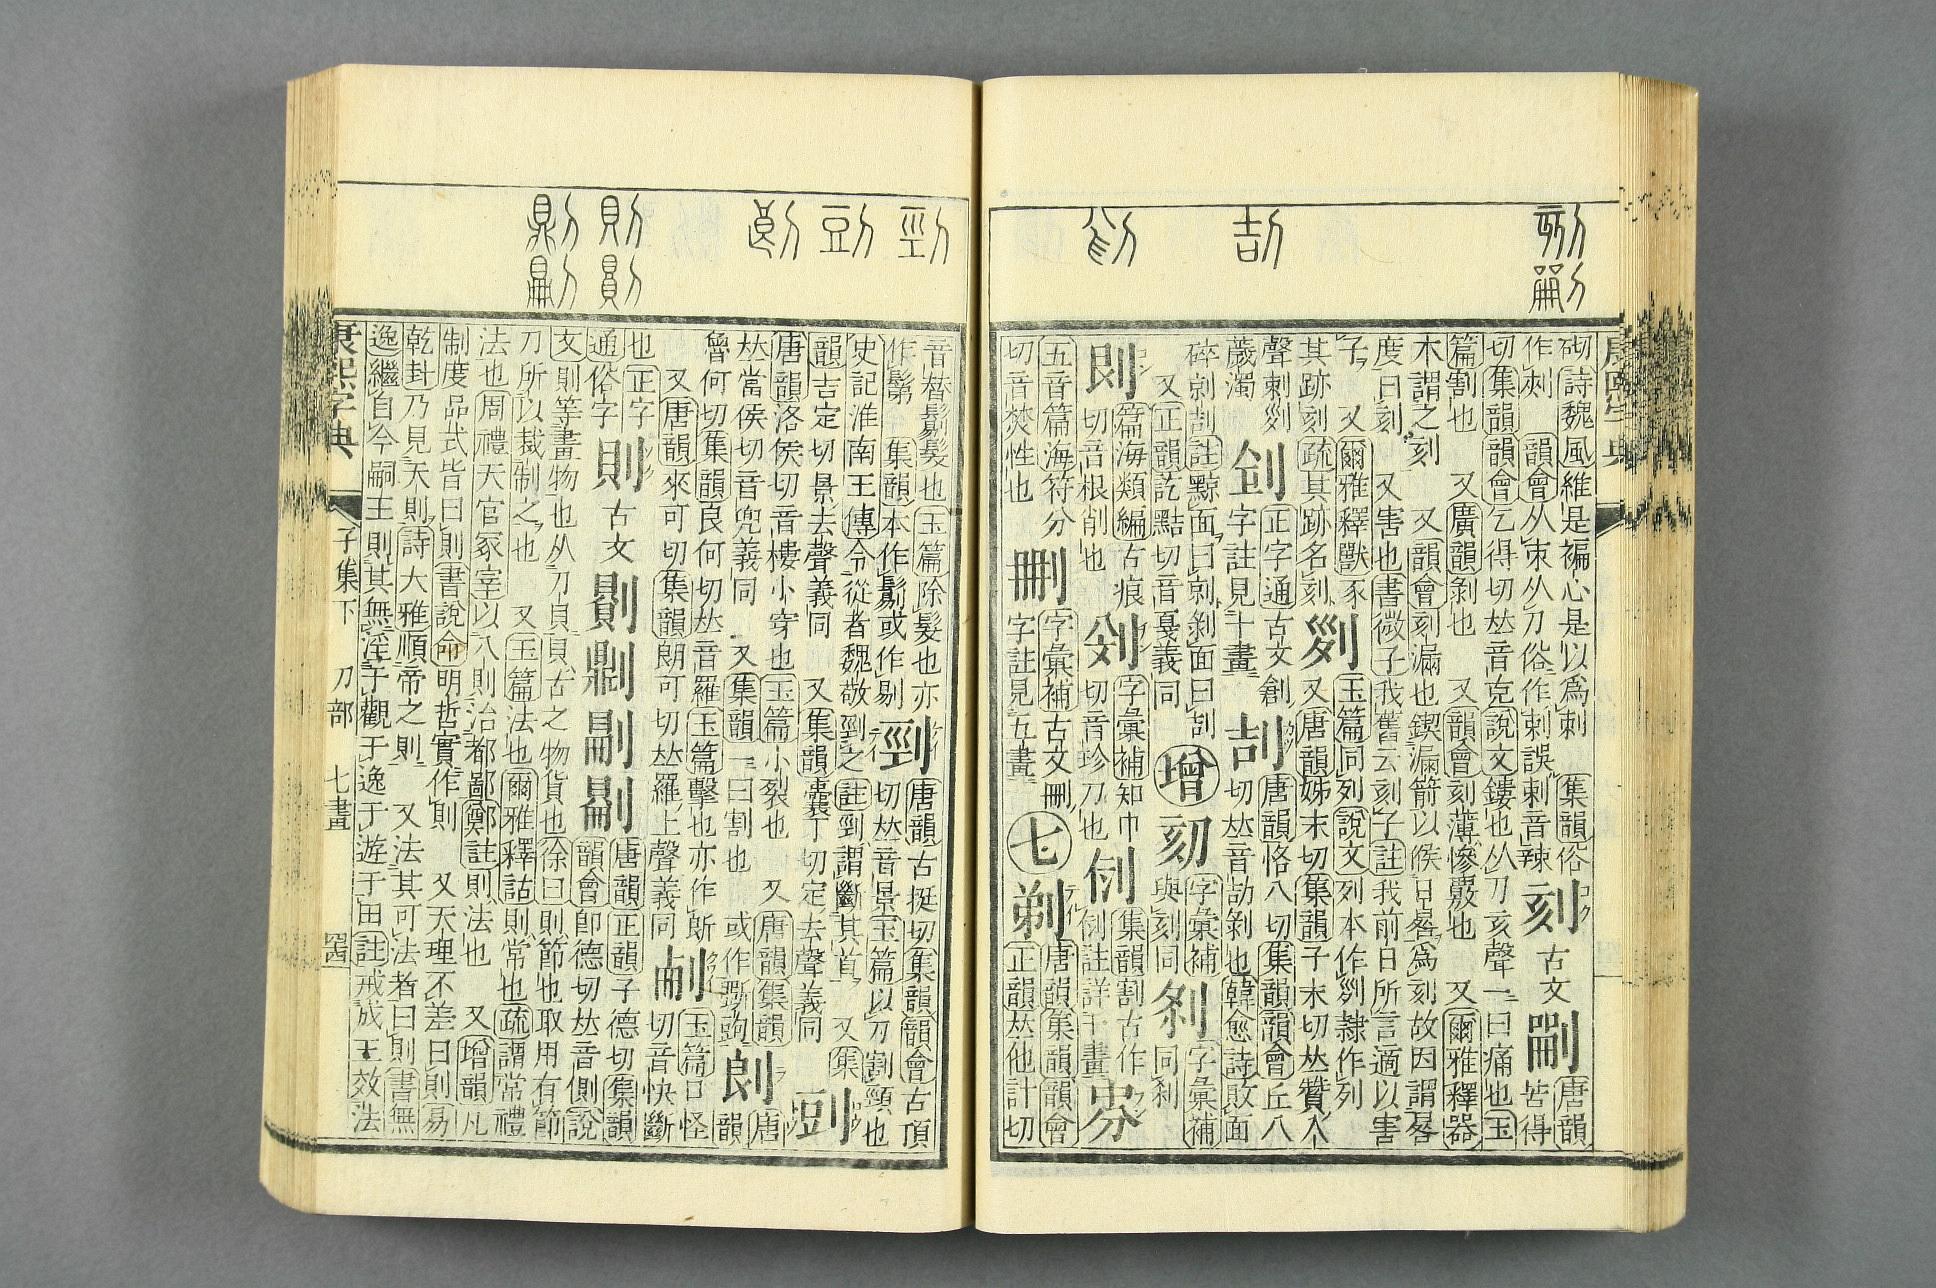 砌詩魏風維是褊心是以爲刺 集韻俗
作刺 韻會从朿从刀俗作刺誤剌音辣
刻
古文
唐韻
苦得
切集韻韻會乞得切𠀤音克說文鏤也从刀亥聲一曰痛也玉
篇割也 又廣韻剝也 又韻會刻薄慘覈也 又爾雅釋器
木謂之刻 又韻會刻漏也鍥漏箭以候日晷爲刻故因謂晷
度曰刻 又害也書微子我舊云刻子註我前日所言適以害
子 又爾雅釋獸豕
其跡刻疏其跡名刻
𠛱
玉篇同列說文列本作𠛱隸作列
又唐韻姊末切集韻子末切𠀤贊入
聲刺𠛱
歲濁
正字通古文創
字註見十畫
㓤
唐韻恪八切集韻韻會丘八
切𠀤音劼剝也韓愈詩敗面
碎剠㓤註黥面曰剠剝面曰㓤
又正韻訖黠切音戞義同
增
字彙補
與刻同
字彙補
同刹
篇海類編古痕
切音根削也
字彙補知巾
切音珍刀也
集韻割古作
註詳十畫
五音篇海符分
切音焚性也
刪
字彙補古文刪
字註見五畫
七
剃
唐韻集韻韻會
正韻𠀤他計切
音替鬀髮也玉篇除髮也亦
作髴 集韻本作鬀或作剔
剄
唐韻古挺切集韻韻會古頂
切𠀤音景玉篇以刀割頸也
史記淮南王傳令從者魏敬剄之註剄謂斷其首 又集
韻吉定切景去聲義同 又集韻囊丁切定去聲義同
剅
唐韻洛侯切音樓小穿也玉篇小裂也 又唐韻集韻
𠀤當侯切音兜義同 又集韻一曰割也 或作
唐
韻
魯何切集韻良何切𠀤音羅玉篇擊也亦作斫
又唐韻來可切集韻朗可切𠀤羅上聲義同
玉篇口怪
切音快斷
也正字
通俗字
則
古文
唐韻正韻子德切集韻
韻會卽德切𠀤音側說
文則等畫物也从刀貝貝古之物貨也徐曰則節也取用有節
刀所以裁制之也 又玉篇法也爾雅釋詁則常也疏謂常禮
法也周禮天官冢宰以八則治都鄙鄭註則法也 又增韻凡
制度品式皆曰則書說命明哲實作則 又天理不差曰則易
乾卦乃見天則詩大雅順帝之則 又法其可法者曰則書無
逸繼自今嗣王則其無淫于觀于逸于遊于田註戒成王效法
康熙字典
子集下 刀部 七畫